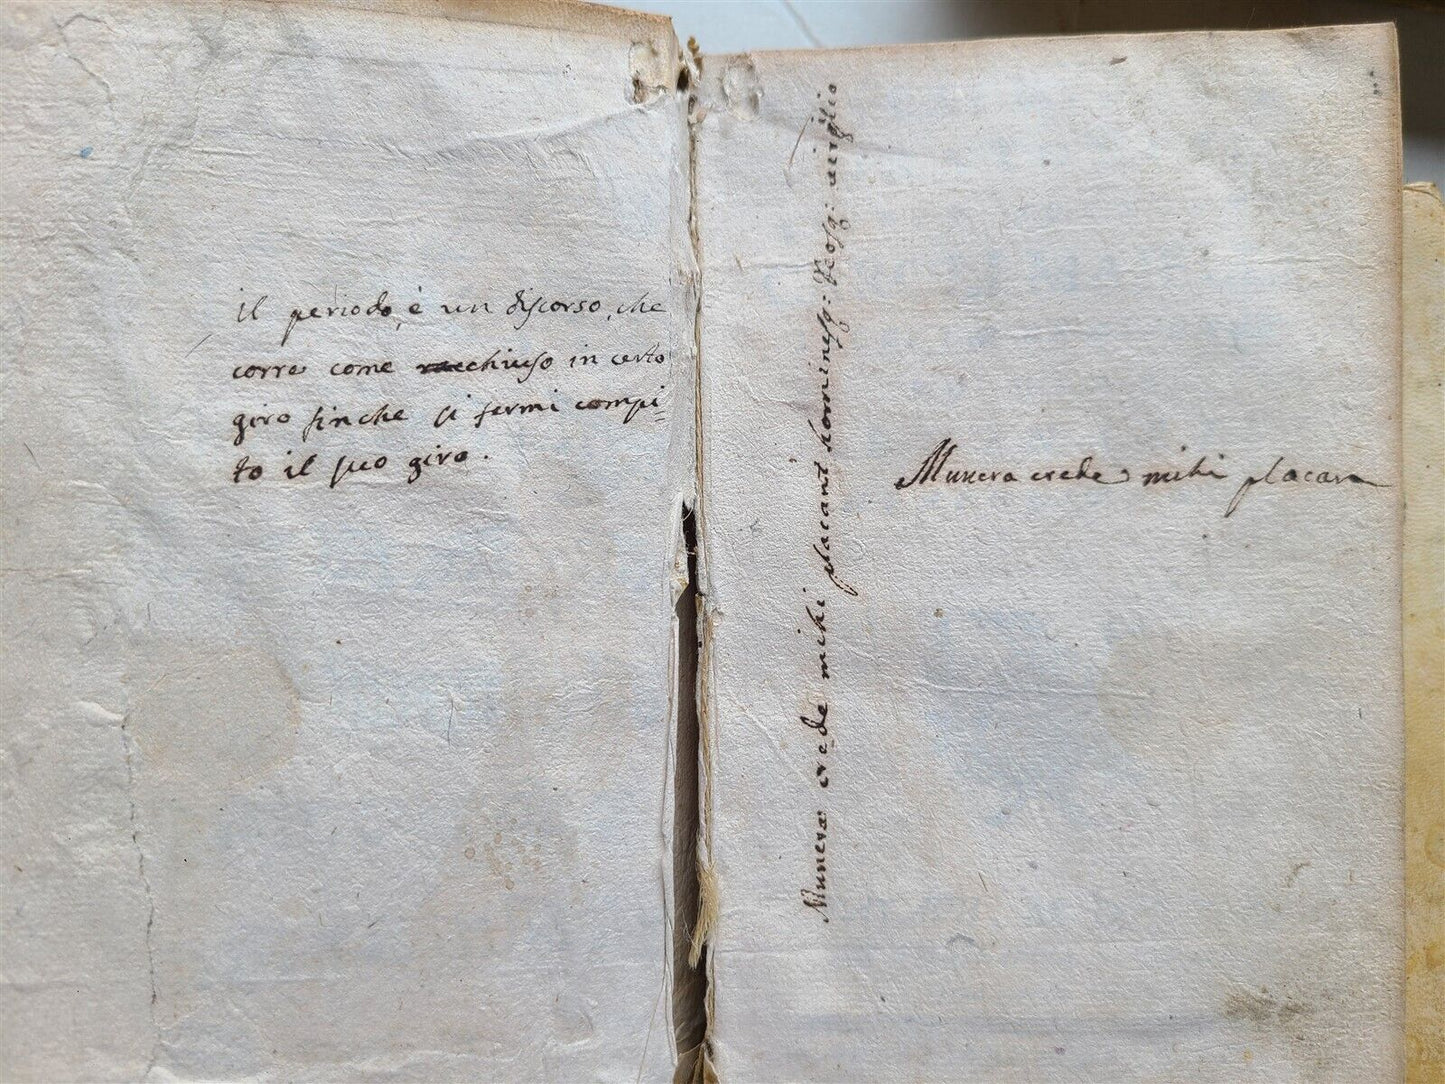 il periodo, è un discorso, che
corre come chiuso in certo
giro finche si fermi compi=
to il suo giro.
Munera crede mihi placant hominesq: Deosq:
Munera crede mihi placan